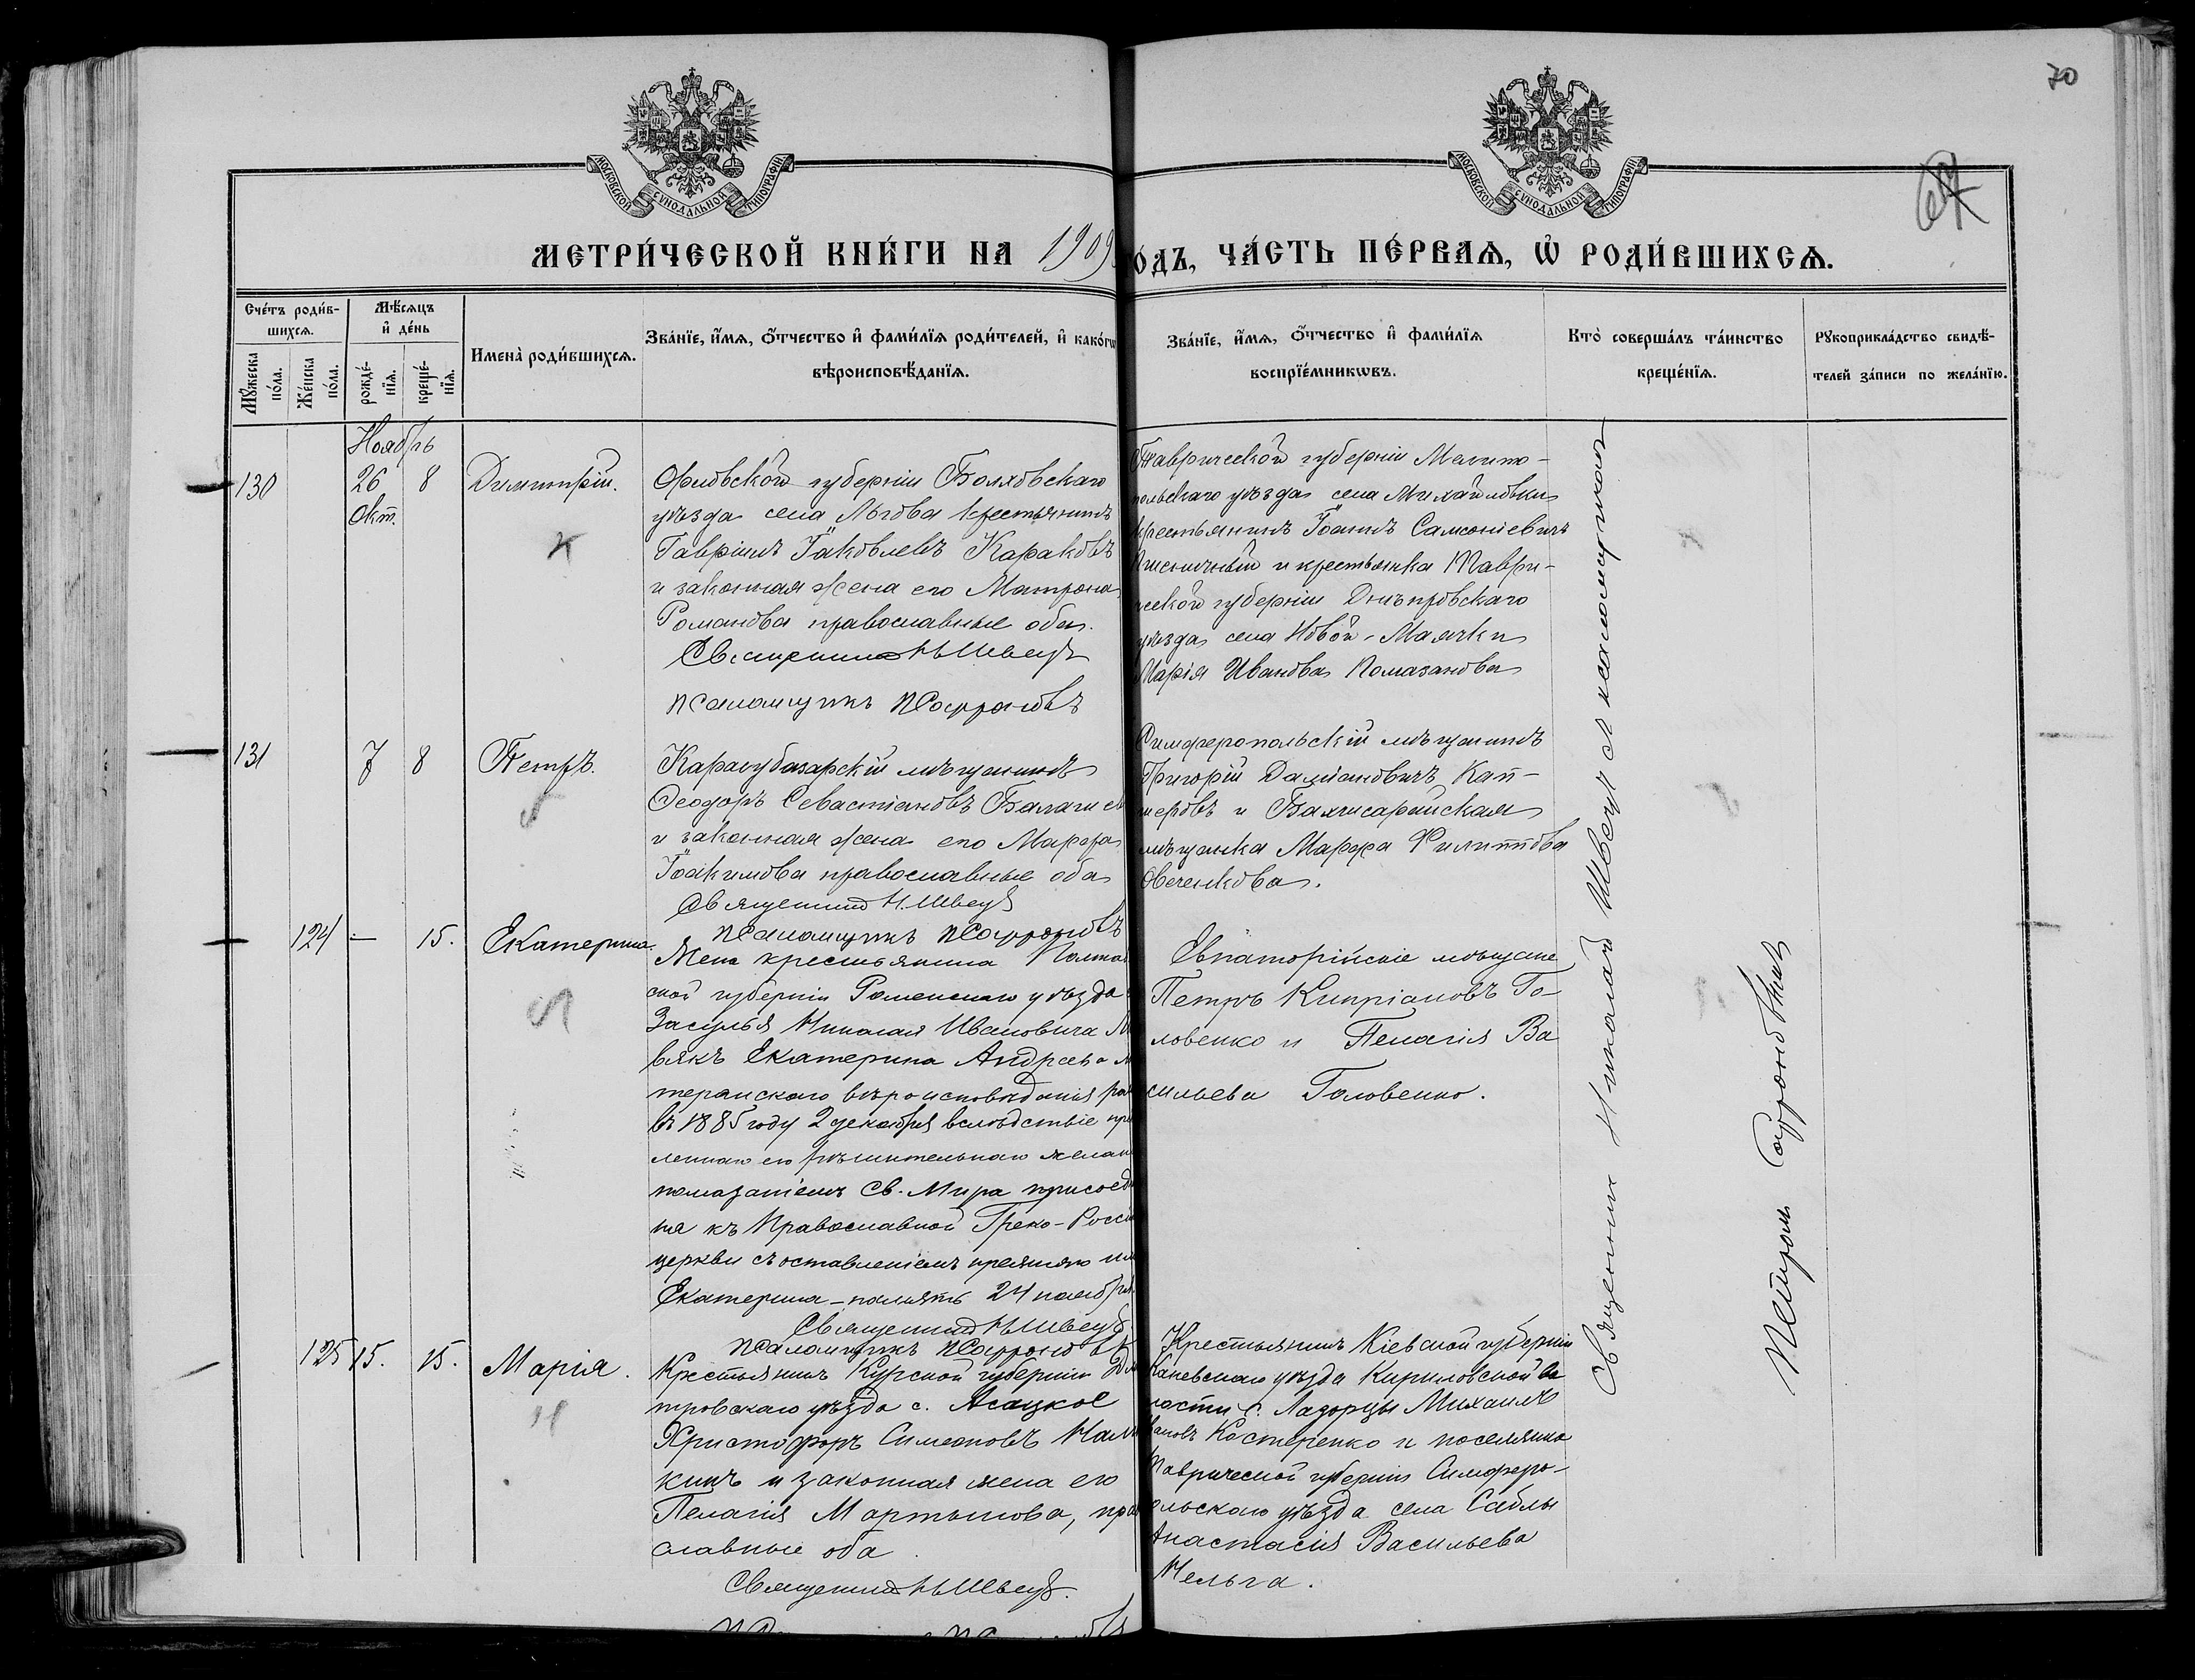 70
МОСКОВСКОЙ СѴНОДАЛЬНОЙ ТИПОГРАФІИ
МОСКОВСКОЙ СѴНОДАЛЬНОЙ ТИПОГРАФІИ
МЕТРИ́ЧЕСКОЙ КНИ́ГИ НА 1909
ОДЪ, ЧА́СТЬ ПЕ́РВАѦ, Ѽ РОДИ́ВШИХСѦ.
Сче́тъ роди́в-
шихсѧ.
Мѣ́сѧцъ
и҆ де́нь
Мꙋ́жеска
по́ла.
Же́нска
по́ла.
рожде́-
нїѧ.
креще́-
нїѧ.
Имена̀ роди́вшихсѧ.
Зва́нїе, и҆́мѧ, ѻ҆́тчество и҆ фами́лїѧ роди́телей, и҆ како́гѡ
вѣроисповѣ́данїѧ.
Зва́нїе, и҆́мѧ, ѻ҆́тчество и҆ фами́лїѧ
воспрїе́мникѡвъ.
Кто̀ соверша́лъ та́инство
креще́нїѧ.
Рꙋкоприкла́дство свидѣ́-
телей за́писи по жела́нїю.
Ноябрь
130
26 8
Окт.
Димитрій.
Орловской губерніи Болховскаго
уѣзда села Льгова крестьянинъ
Гавріилъ Іаковлевъ Караковъ
и законная жена его Матрона
Романова православные оба.
Священникъ Н. Швецъ
псаломщикъ П Софроновъ
Таврической губерніи Мелито-
польскаго уѣзда села Михайловки
крестьянинъ Іоаннъ Самсоніевичъ
и крестьянка Таври-
ческой губерніи Днѣпровскаго
уѣзда села Новой-Маячки
Марія Иванова Помазанова
131
7 8
Петръ.
Карасубазарскій мѣщанинъ
Ѳеодоръ Севастіановъ
и законная жена его Марфа
Іоакимова православные оба
Священникъ Н. Швецъ
псаломщикъ П Софроновъ
Симферопольскій мѣщанинъ
Григорій Даміановичъ Кап-
и Бахчисарайская
мѣщанка Марфа Филиппова
Овечкова.
124 — 15.
Екатерина.
Жена крестьянина Полтав
ской губерніи Роменскаго уѣзда
Засулья Николая Ивановича
Екатерина Андреева
теранскаго вѣроисповѣданія
въ 1885 году 2 декабря вслѣдствіе
леннаго ею рѣшительнаго желан
помазаніемъ Св. Мира присоеди
на къ Православной Греко-Росс
церкви съ оставленіемъ прежняго им
Екатерина - память 24 ноября
Священникъ Н. Швецъ
псаломщикъ П Софроновъ
Евпаторійскіе мѣщане
Петръ Кипріановъ Го-
ловенко и Пелагія Ва
сильева Головенко.
125 15. 15.
Марія.
Крестьянинъ Курской губерніи Дми
тровскаго уѣзда с. Асацкое
Христофоръ Симеоновъ
кинъ и законная жена его
Пелагія Мартынова, пра
славные оба
Священникъ Н. Швецъ.
Крестьянинъ Кіевской губерніи
Каневскаго уѣзда Кириловской во
лости с. Лазорцы Михаилъ
Костеренко и поселянка
Таврической губерніи Симферо-
польскаго уѣзда села Саблы
Анастасія Васильева
Мельга.
Священникъ Николай Швецъ и псаломщикъ
Петръ Софроновъ